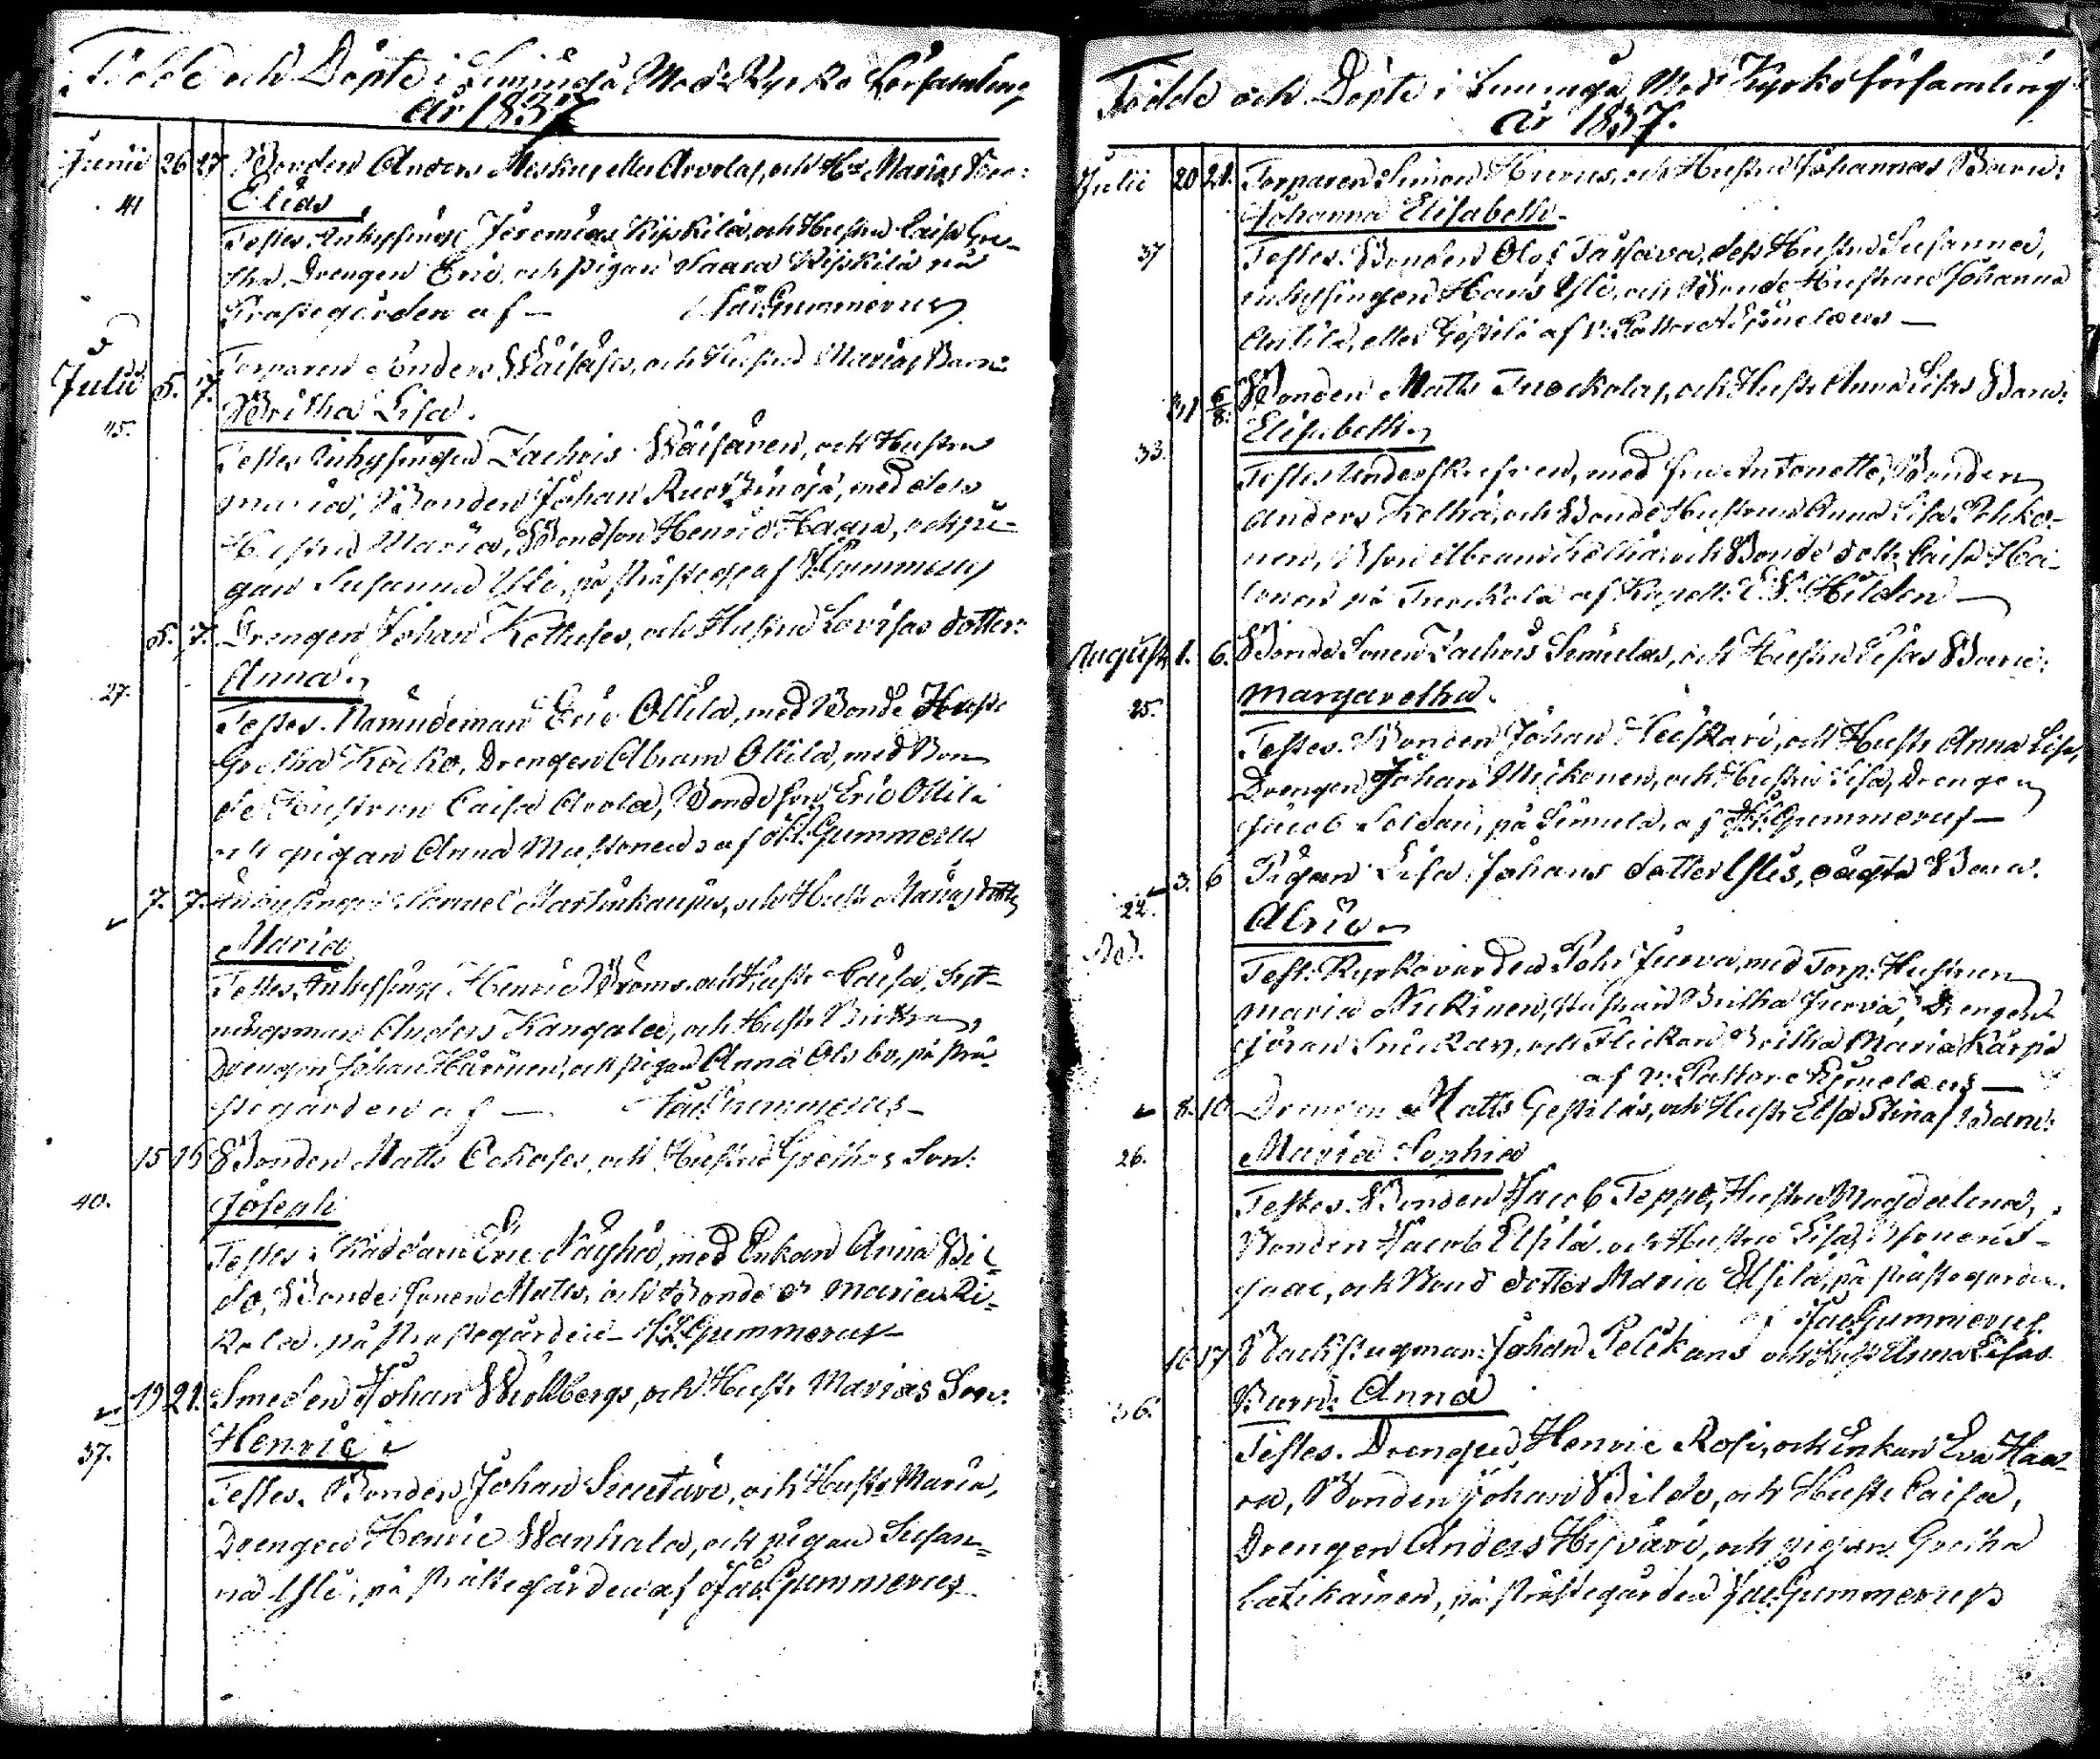 Födde och Döpte i Limingo Mod. Kyrko Församling
år 1837
Junii 26 27 Bonden Anders Meskus eller Arvolas, och H. Marias Son:
41 Elias
Testes. Inhysing Jeremias Kyskilä, och Hustru Caisa Gre-
tha, Drengen Eric, och pigan Saara Kiskilä på
Prostegården af — Jac. Gummerus
Julii 5. 7. Torparen Anders Wäisäses, och Hustru Marias Barn:
45. Britha Lisa.
Testes Inhysingen Zachris Wäisänen, och Hustru
Maria, Bonden Johan Ruotzinoja, med dess
Hustru Maria, Bondson Henric Haara, och pi-
gan Susanna Yli, på Prosteg. af J. Gummerus
5. 7. Drengen Johan Kethuses, och Hustru Lovisas dotter:
27. Anna.
Testes. Nämndeman Eric Ollila, med Bonde Hustr.
Gretha Kocko, Drengen Abram Ollila, med Bon-
de Hustrun Caisa Arola, Bondeson Eric Ollila
och pigan Anna Mustonen, af J. Gummerus
7. 7. Inhysingen Samuel Martinkaupis, och Hustr. Marias dotter
Maria
Testes, Inhysing Henric Ströms, och Hustr. Caisa, Sytt-
ningsman Anders Kangala, och Hustr. Britha,
Drengen Johan Härönen, och pigan Anna Olsbo, på Pro-
stegården af — Jac. Gummerus
15 16 Bonden Matts Cokoses, och Hustru Grethas Son:
40. Joseph
Testes: Eric, med Enkan Anna Bil-
do, Bonde Sonen Matts, och Bonde dr Maria Ri-
kola, på Prostegården J. Gummerus
19 21. Smeden Johan Wiolbergs, och Hustr. Marias Son:
37. Henric
Testes. Bonden Johan Siuctari, och Hustr. Maria,
Drengen Henric Wanhala, och pigan Susan-
na Yli, på Prostegården af Jac. Gummerus
Födde och Döpte i Limingo Mod. Kyrkoförsamling
år 1837.
Julii 20 21. Torparen Simon Hurus, och Hustru Johannas Barn:
Johanna Elisabeth.
37 Testes. Bonden Olof Tassava, dess Hustru Susanna,
inhysingen Hans Yli, och Bonde Hustrun Johanna
Antila, eller Gestilä af v. Pastor A. Simelæus —
31 6/8. Bonden Matts Tuockolas, och Hustr. Anna Lisas Barn:
33. Elisabeth
Testes Underskrefven, med fru Antonette, Bonden
Anders Kolhä, och Bonde Hustrun Anna Lisa Pehko-
nen, Bson Abram Kolhä, och Bonde dottr. Caisa Ha-
lonen på Tuockola af Kapell: Hildén —
Augusti 1. 6. Bonde Sonen Zachris Simulas, och Hustru Lisas Barn:
25. Margaretha.
Testes. Bonden Johan Heiskari, och Hustr. Anna Lisa,
Drengen Johan Mickonen, och Hustru Lisa, Drengen
Jacob Soldan, på Simula, af J. Gummerus —
3. 6 Pigan Lisa Johans dotter Ylis, oägta Barn.
22. Abris
Död.
Test: Kyrkovärden Pehr Jurva, med Torp. Hustrun
Maria Nickinen, Hustrun Britha Jurva, Drengen
Göran Snickar, och Flickan Britha Maria Kärpä
af v. Pastor A. Simelæus —
8. 10 Drengen Matts Gestiläs, och Hustr. Elsa Stinas Barn:
26. Maria Sophia
Testes. Bonden Jacob Teppo, Hustru Magdalena,
Bonden Jacob Elsilä, och Hustru Lisa, Bsonen I-
saac, och Bond dotter Maria Elsilä, på Prostegården
af Jac. Gummerus.
16 17 Backstugman: Johan Pelekans och Hustr. Anna Lisas
36. Barn: Anna
Testes. Drengen Henric Rosi, och Enkan Eva Haa-
ra, Bonden Johan Bildo, och Hustr. Caisa,
Drengen Anders Hyväri, och pigan Gretha
Latikainen, på Prostegården Jac. Gummerus